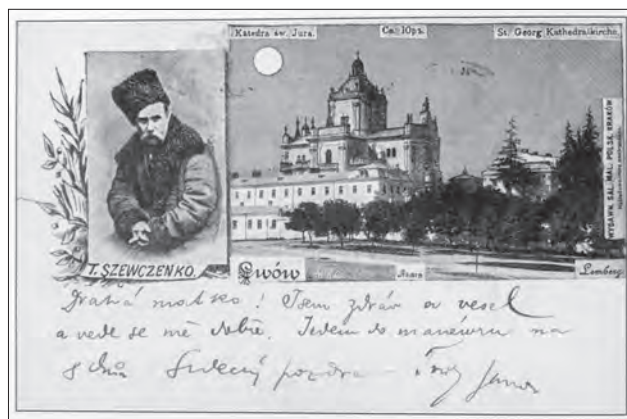 Katedra św. Jura.
Св. Юръ.
St. Georg Kathedralkirche.
WYDAWN. SAL. MAL. POLSK. KRAKÓW
T. SZEWCZENKO.
Lwów
Lemberg.
Drahá matko! Jsem zdráv a vesel
a vede se mě dobře. Jedem do manévru na
8 dnů Srdečný pozdrav Tvůj